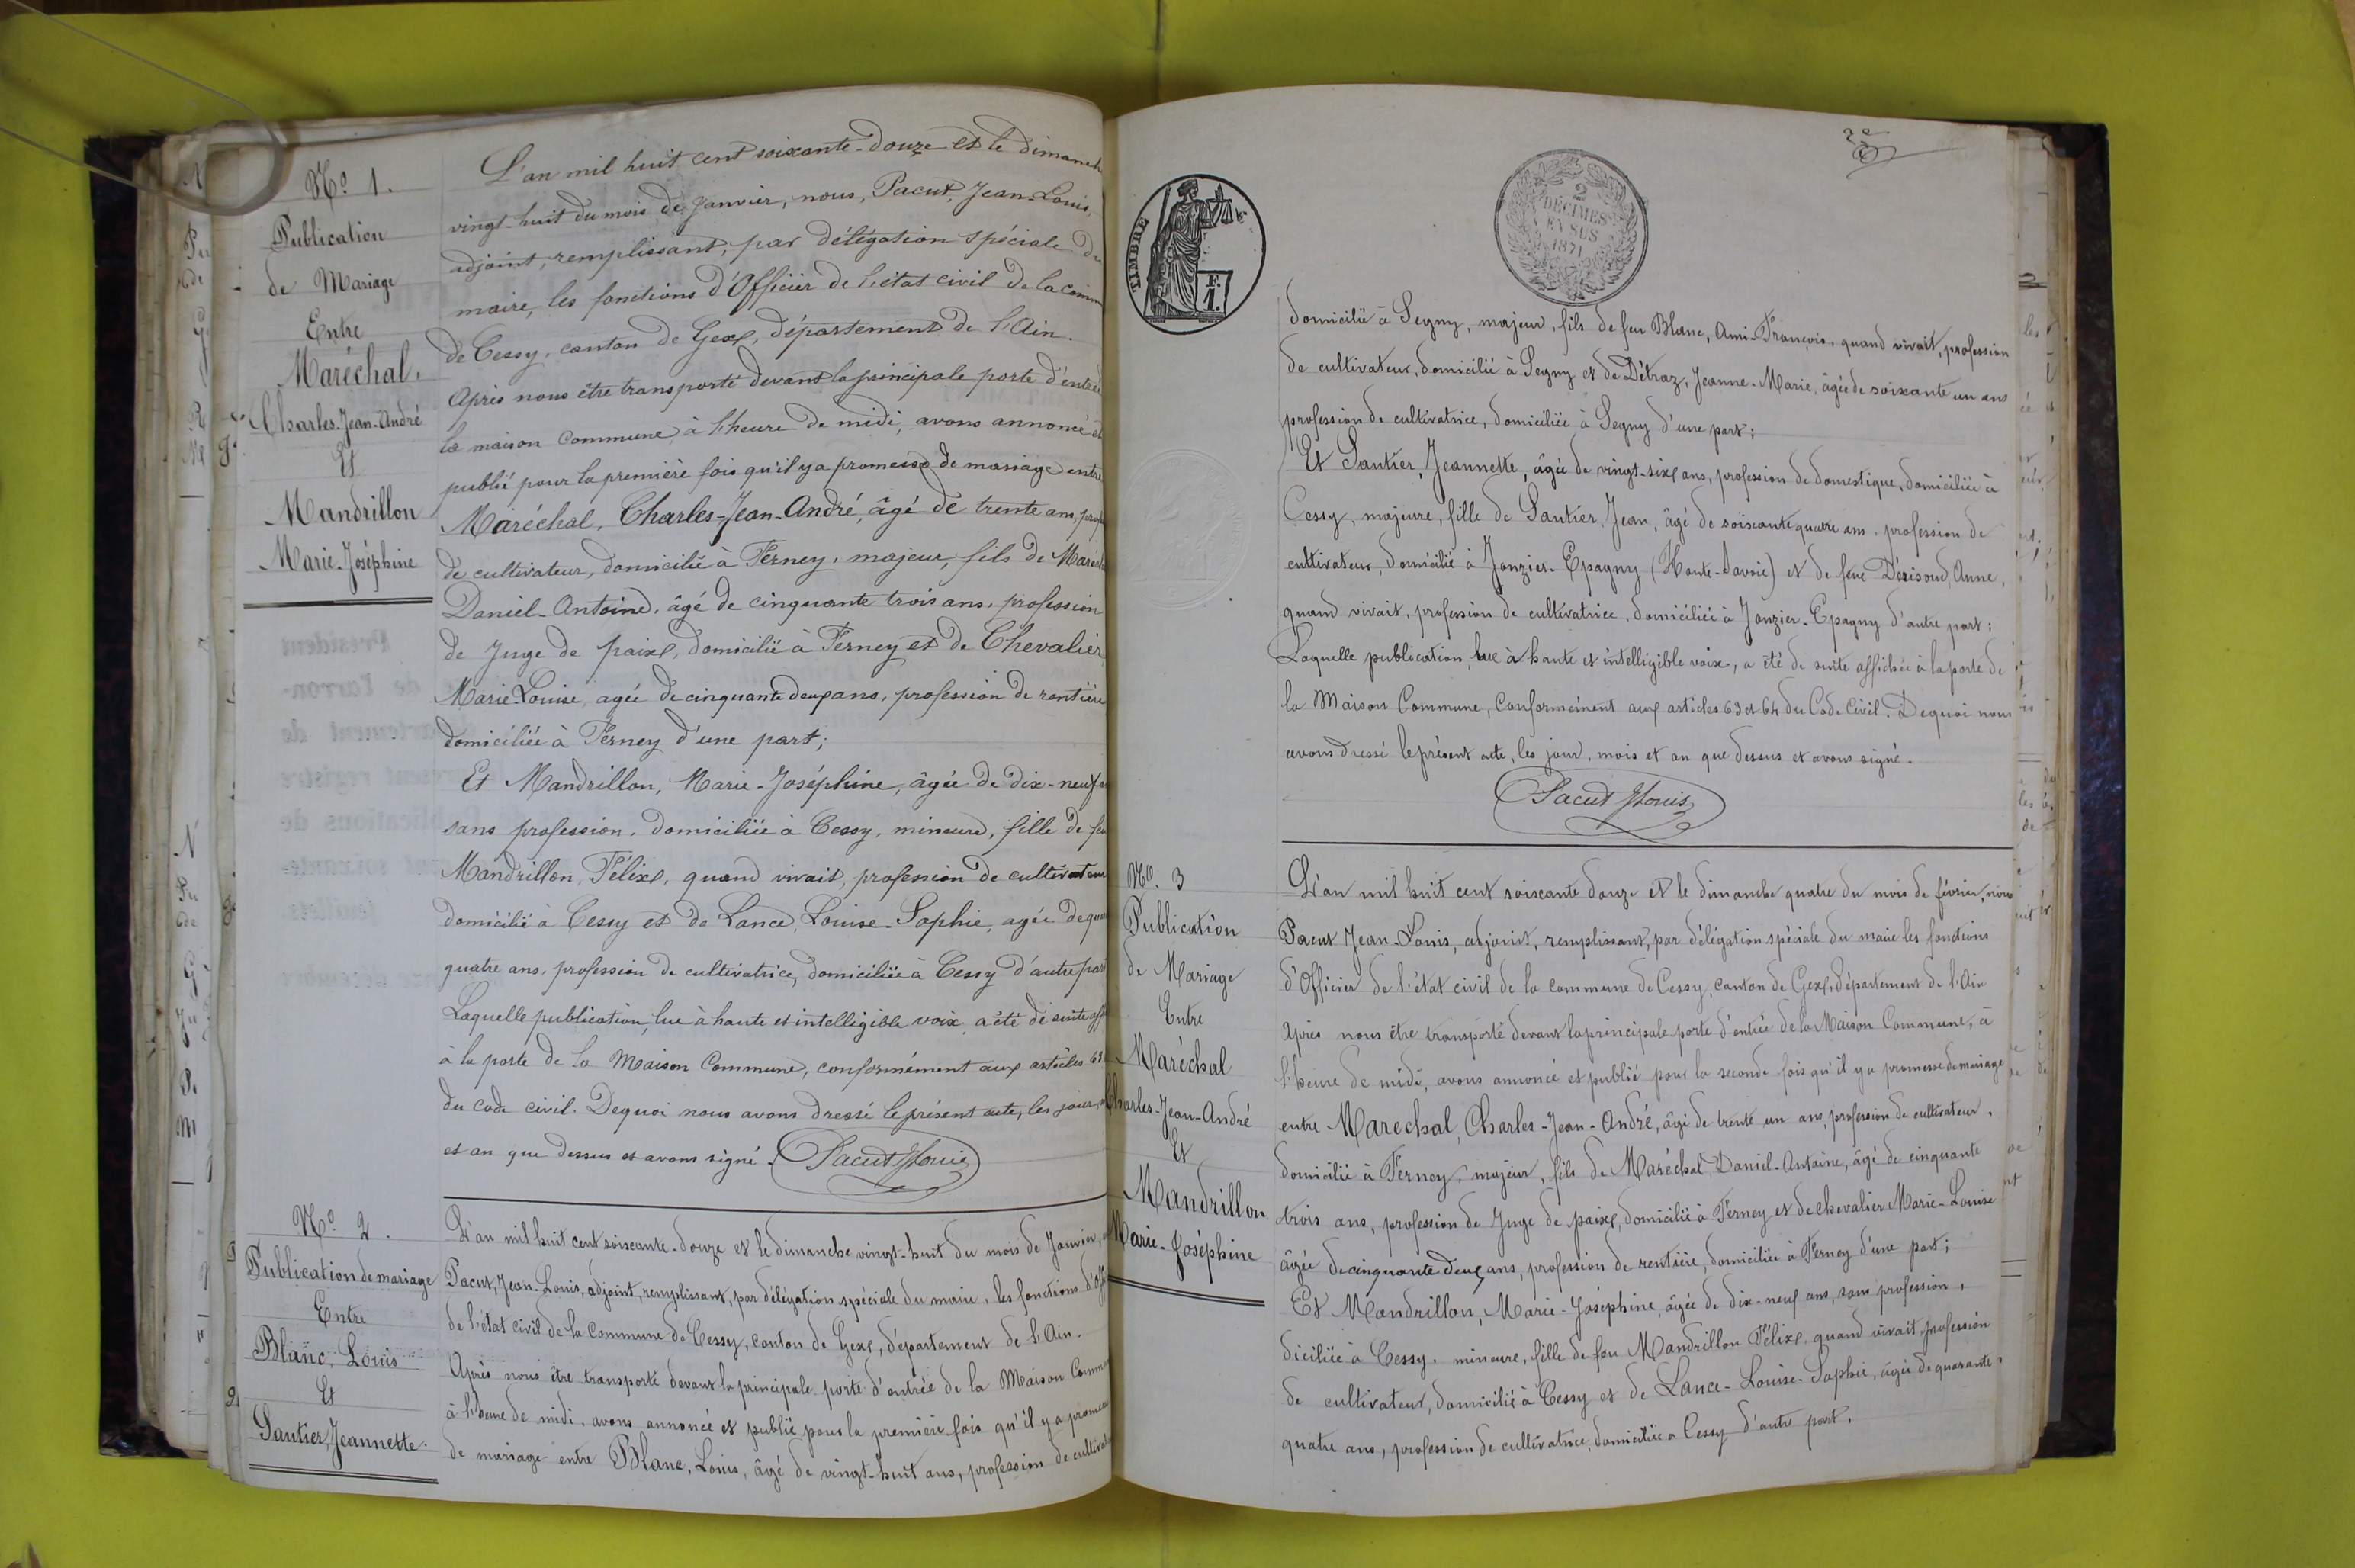 N.º 1.
Publication
de Mariage
Entre
Maréchal,
Charles-Jean-André
Et
Mandrillon
Marie-Joséphine
L'an mil huit cent soixante-douze et le dimanch
vingt-huit du mois de Janvier, nous, Pacut, Jean-Louis,
adjoint, remplissant, par délégation spéciale du
maire, les fonctions d'Officier de l'état civil de la comm
de Cessy, canton de Gex, département de l'Ain.
Après nous être transporté devant la principale porte d'entrée
la maison Commune, à l'heure de midi, avons annoncé et
publié pour la première fois qu'il y a promesse de mariage entre
Maréchal, Charles-Jean-André, âgé de trente ans, prof
de cultivateur, domicilié à Ferney, majeur, fils de Maréch
Daniel-Antoine, âgé de cinquante trois ans, profession
de Juge de paix, domicilié à Ferney et de Chevalier
Marie-Louise, agée de cinquante deux ans, profession de rentière
domiciliée à Ferney d'une part;
Et Mandrillon, Marie-Joséphine, âgée de dix-neuf an
sans profession, domiciliée à Cessy, mineure, fille de feu
Mandrillon, Félix, quand vivait, profession de cultivateur
domicilié à Cessy et de Lance, Louise-Sophie, agée de quar
quatre ans, profession de cultivatrice, domiciliée à Cessy d'autre part
Laquelle publication, lue à haute et intelligible voix, a été de suite aff
à la porte de la Maison Commune, conformément aux articles 63
du code civil. De quoi nous avons dressé le présent acte, les jour, m
et an que dessus et avons signé. Pacut JLouis
N.º 2.
Publication de mariage
Entre
Blanc, Louis
Et
Santier, Jeannette.
L'an mil huit cent soixante-douze et le dimanche vingt-huit du mois de Janvier,
Pacut, Jean-Louis, adjoint, remplissant, par délégation spéciale du maire, les fonctions d'Off
de l'état civil de la Commune de Cessy, canton de Gex, département de l'Ain.
Après nous être transporté devant la principale porte d'entrée de la Maison Commun
à l'heure de midi, avons annoncé et publié pour la première fois qu'il y a promesse
de mariage entre Blanc, Louis, âgé de vingt-huit ans, profession de cultivat
TIMBRE
F.
1.
2
DÉCIMES
EN SUS
1871
domicilié à Segny, majeur, fils de feu Blanc, Ami-François, quand vivait, profession
de cultivateur, domicilié à Segny et de Détraz, Jeanne-Marie, âgée de soixante un ans
profession de cultivatrice, domiciliée à Segny d'une part;
Et Santier, Jeannette, âgée de vingt-six ans, profession de domestique, domiciliée à
Cessy, majeure, fille de Santier, Jean, âgé de soixante quatre ans, profession de
cultivateur, domicilié à Jonzier-Epagny (Haute-Savoie) et de feue Dérisoud, Anne,
quand vivait, profession de cultivatrice, domiciliée à Jonzier-Epagny d'autre part;
Laquelle publication, lue à haute et intelligible voix, a été de suite affichée à la porte de
la Maison Commune, conformément aux articles 63 et 64 du Code Civil. De quoi nous
avons dressé le présent acte, les jour, mois et an que dessus et avons signé.
Pacut JLouis
N.º 3
Publication
de Mariage
Entre
Maréchal
Charles-Jean-André
Et
Mandrillon
Marie-Joséphine
L'an mil huit cent soixante douze et le dimanche quatre du mois de février, nous
Pacut Jean-Louis, adjoint, remplissant, par délégation spéciale du maire les fonctions
d'Officier de l'état civil de la commune de Cessy, canton de Gex, département de l'Ain
Après nous être transporté devant la principale porte d'entrée de la Maison Commune, à
l'heure de midi, avons annoncé et publié pour la seconde fois qu'il y a promesse de mariage
entre Marechal, Charles-Jean-André, âgé de trente un ans, profession de cultivateur,
domicilié à Ferney, majeur, fils de Maréchal Daniel-Antoine, âgé de cinquante
trois ans, profession de Juge de paix, domicilié à Ferney et de chevalier Marie-Louise
âgée de cinquante deux ans, profession de rentière, domiciliée à Ferney d'une part;
Et Mandrillon, Marie-Joséphine, âgée de dix-neuf ans, sans profession,
diciliée à Cessy, mineure, fille de feu Mandrillon Félix, quand vivait, profession
de cultivateur, domicilié à Cessy et de Lance-Louise-Sophie, âgée de quarante
quatre ans, profession de cultivatrice, domiciliée à Cessy d'autre part,